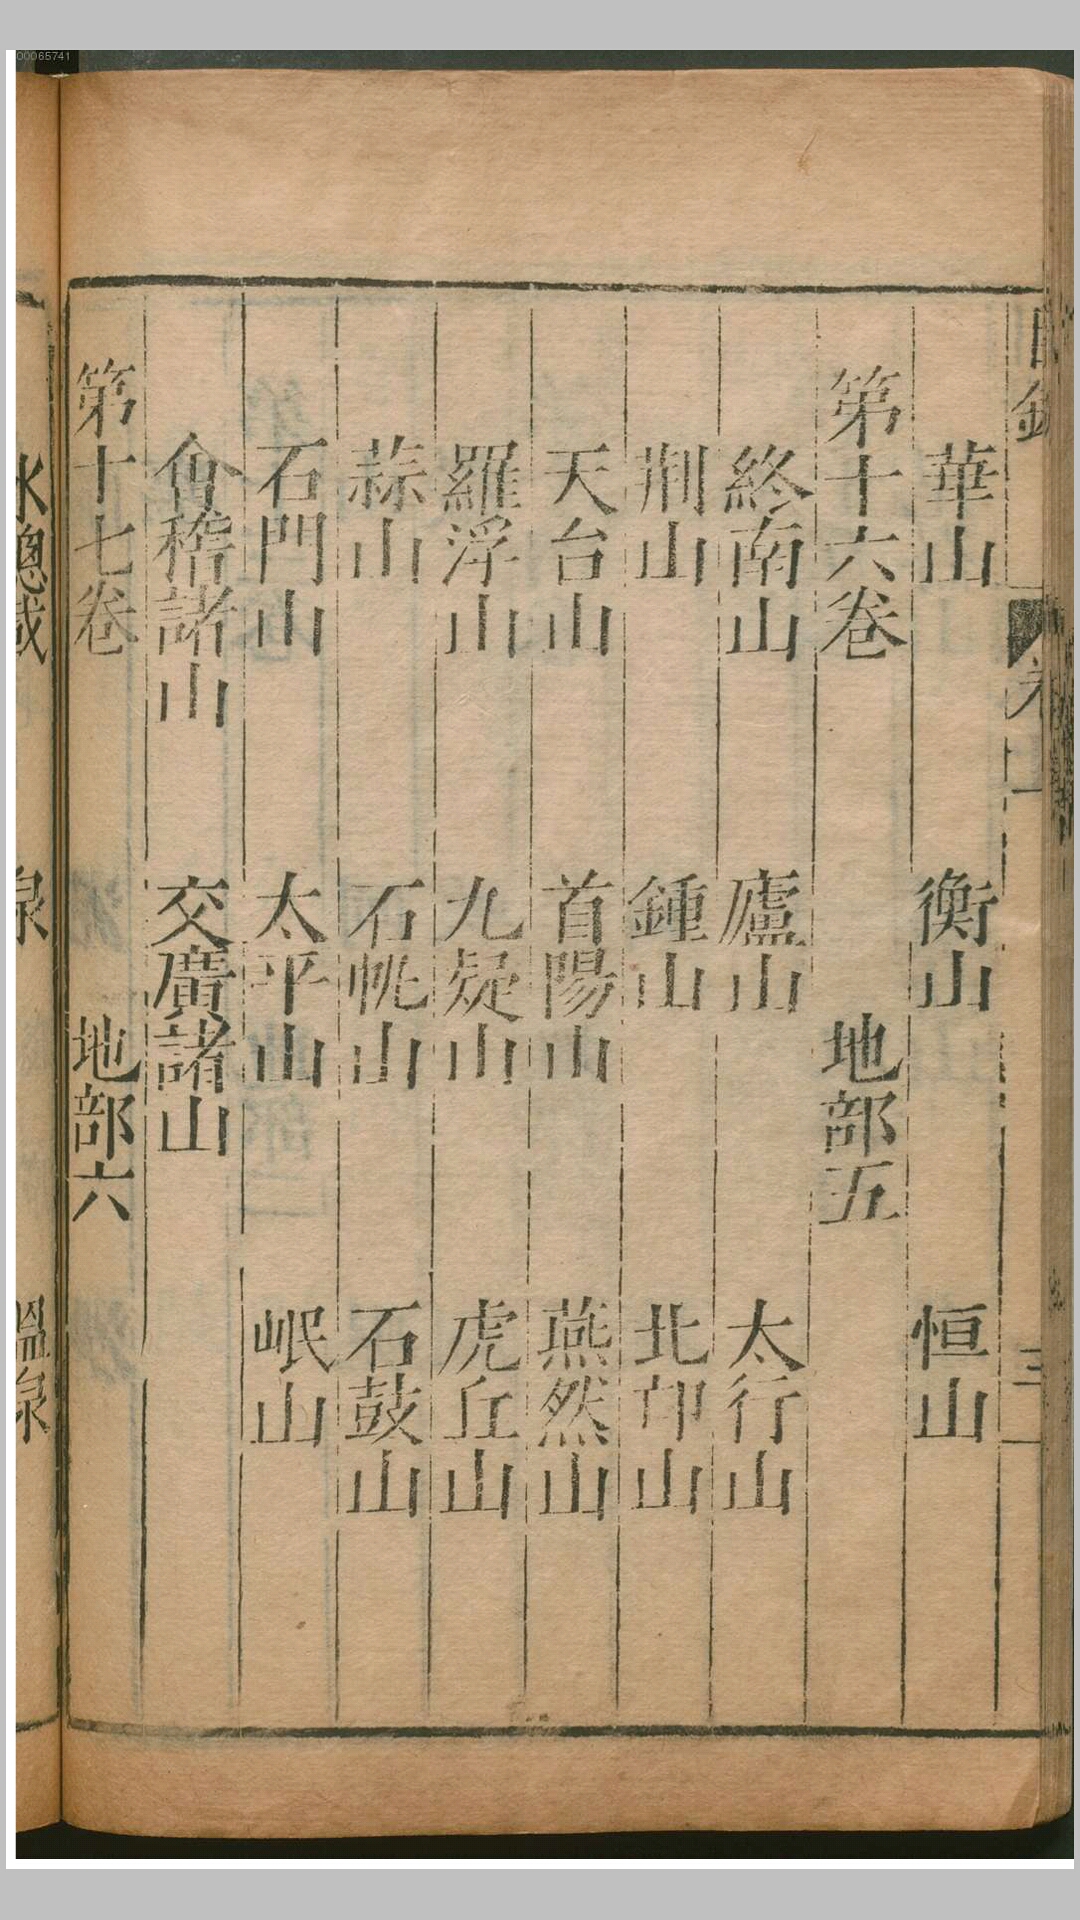 00065741
華山 衡山 恒山
第十六卷 地部五
終南山 廬山 太行山
荆山 鍾山 北邙山
天台山 首陽山 燕然山
羅浮山 九疑山 虎丘山
蒜山 石帆山 石鼓山
石門山 太平山 岷山
會稽諸山 交廣諸山
第十七卷 地部六